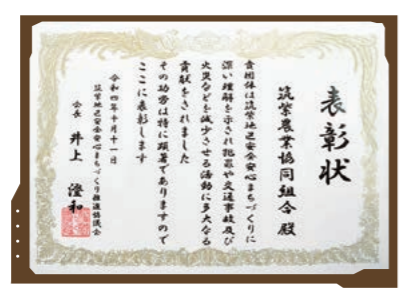 表彰状
筑紫農業協同組合 殿
貴団体は筑紫地区安全安心まちづくりに
深い理解を示され犯罪や交通事故及び
火災などを減少させる活動に多大なる
貢献をされました
その功労は特に顕著でありますので
ここに表彰します
令和四年十月十一日
筑紫地区安全安心まちづくり推進協議会
会長 井上 澄和